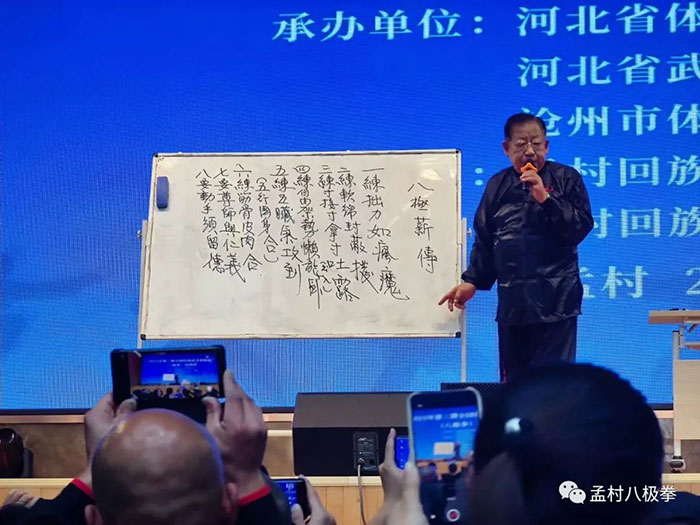 承办单位：河北省体
河北省武
沧州市体
：村回族
村回族
孟村 2
八極薪傳
一練拙力如瘋魔
二練軟綿封蔽
三練寸接寸拿寸土露
四練自由勢懶龍臥
五練五臟氣攻到
六練筋骨皮肉合
七要尊師與仁義
八要動手須留德
孟村八极拳